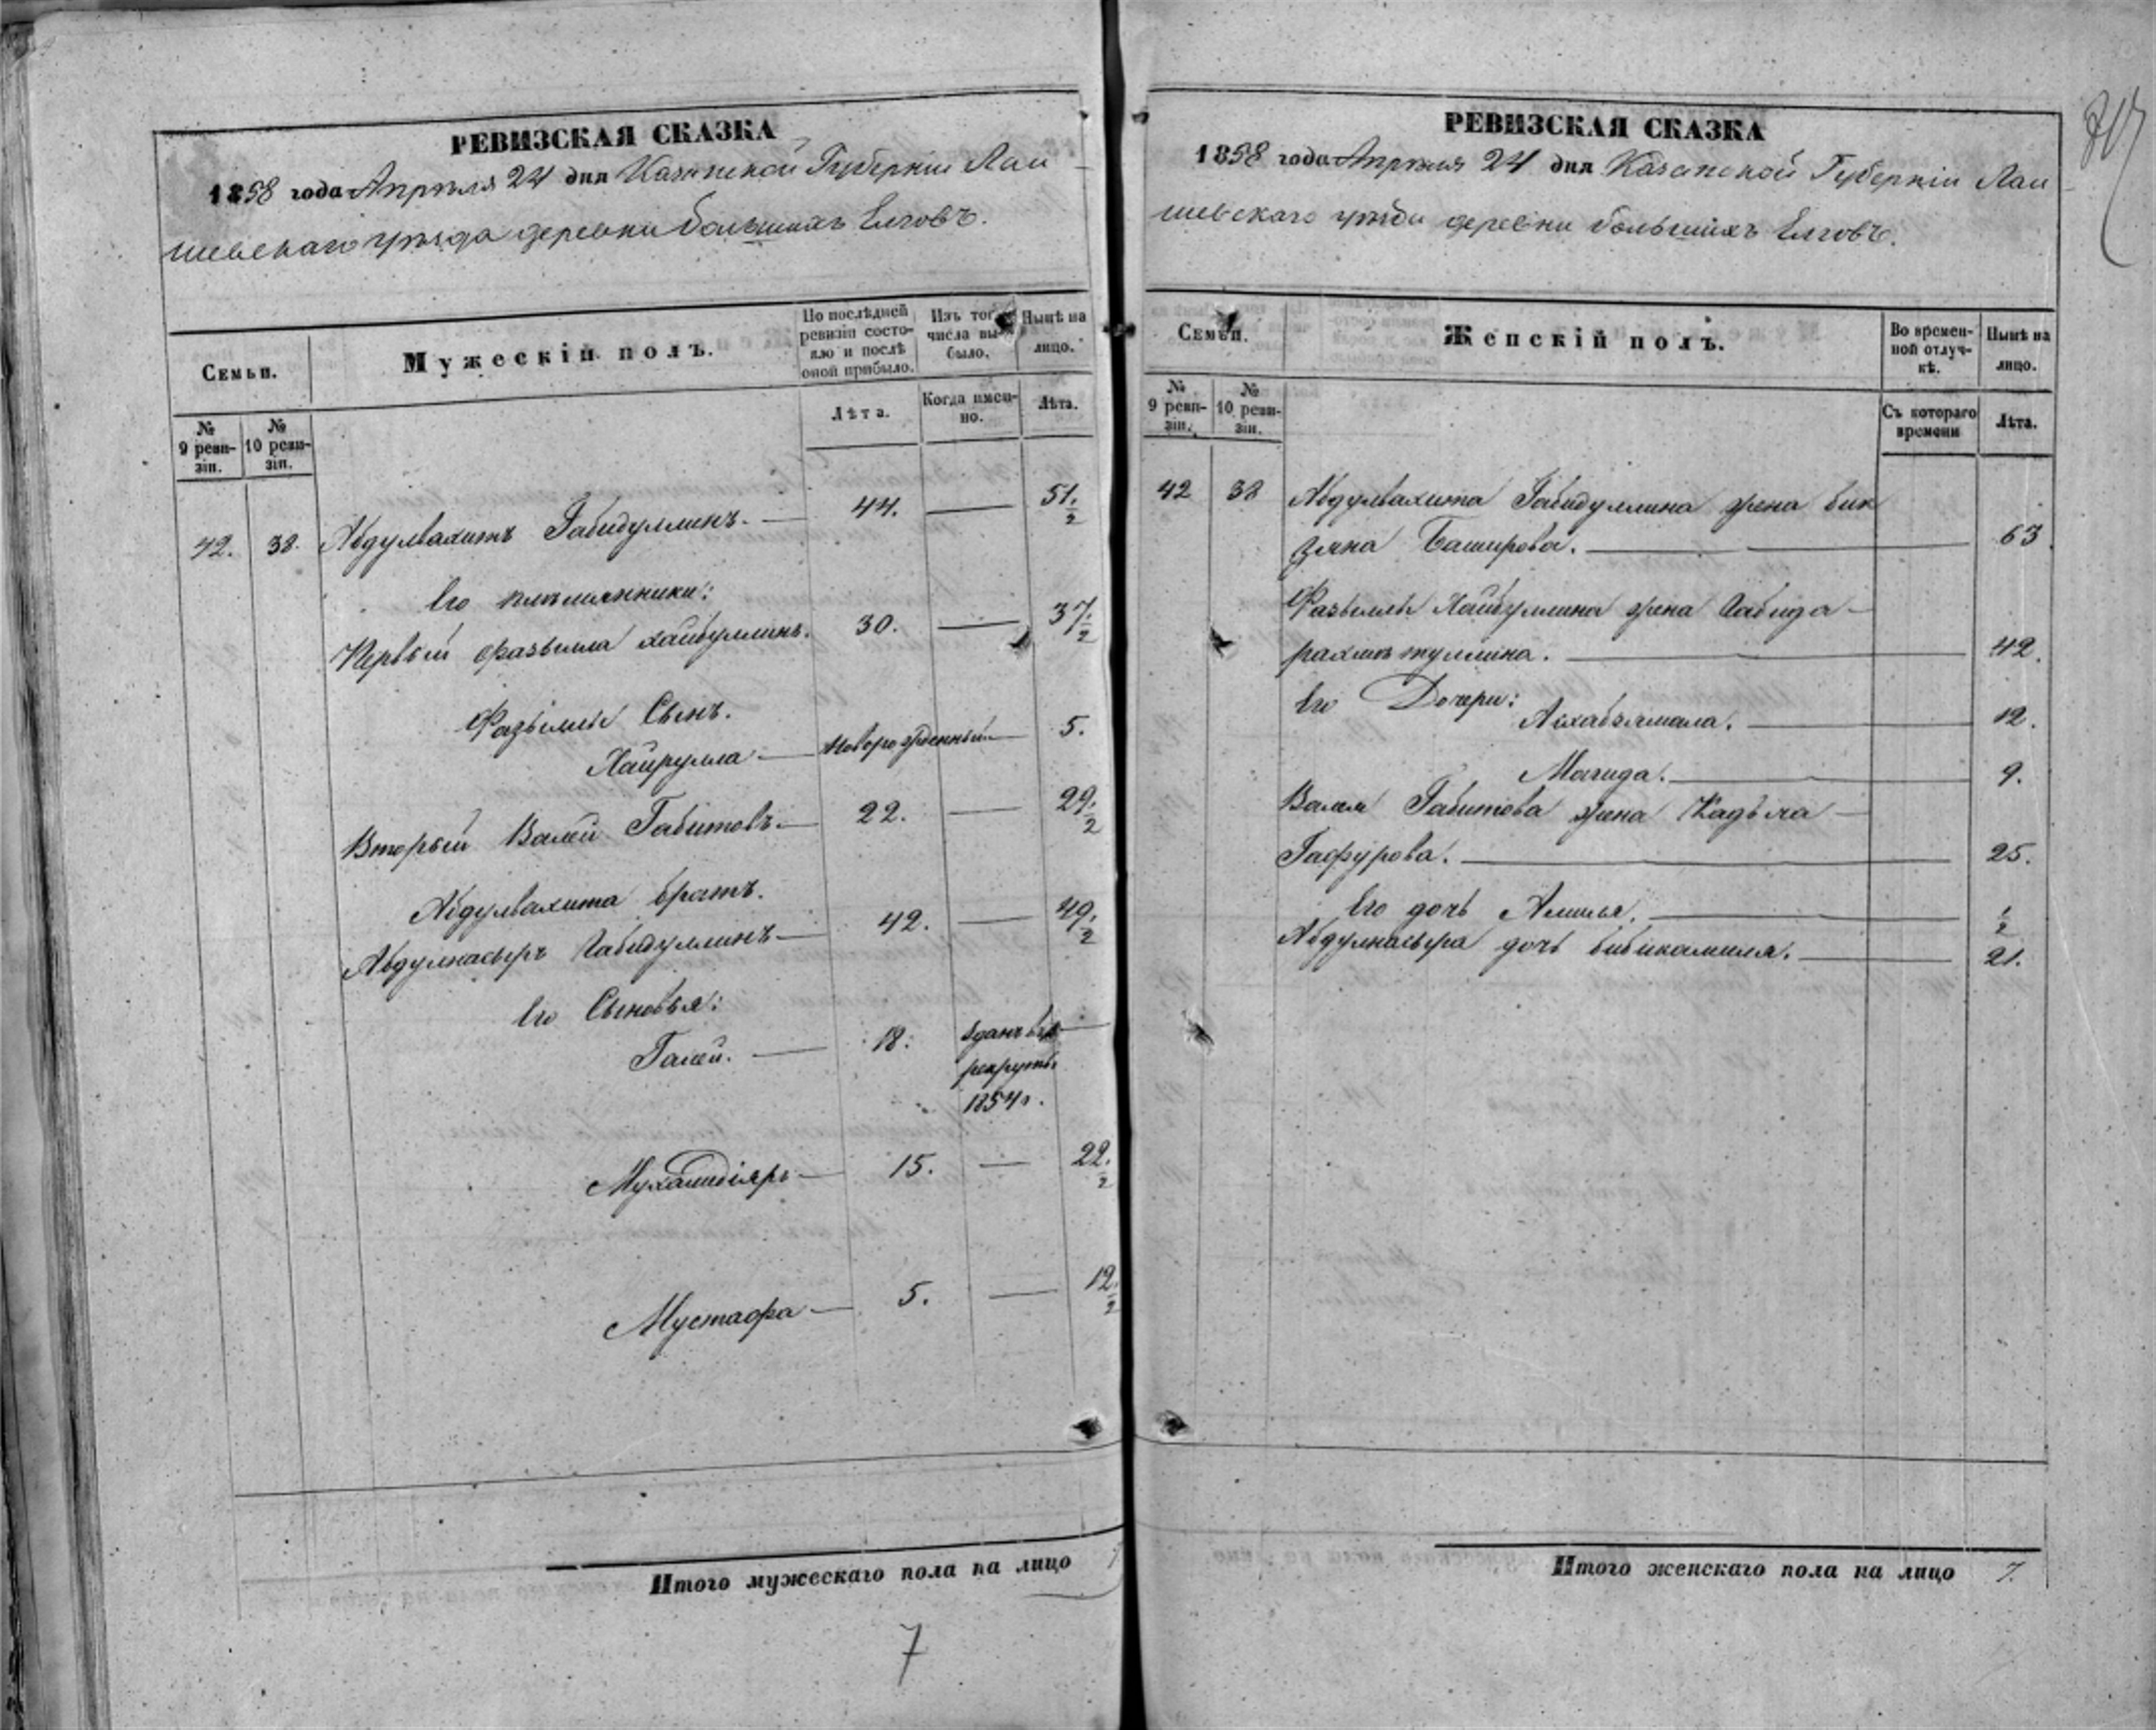 РЕВИЗСКАЯ СКАЗКА
1858 года Апрѣля 24 дня Казанской Губерніи Лаи-
шевскаго уѣзда деревни большихъ Елговъ.
Семьи.
Мужескій полъ.
По послѣдней ревизіи состояло и послѣ оной прибыло.
Изъ того числа выбыло.
Нынѣ на лицо.
№ 9 ревизіи.
№ 10 ревизіи.
Лѣта.
Когда именно.
Лѣта.
42. 38. Абдулвахитъ Габидуллинъ. — 44. — 51 1/2
Его племянники:
Первый Фазылла Хайбуллинъ. 30. — 37 1/2
Фазыллы Сынъ.
Хайрулла — новорожденный — 5.
Вторый Валей Габитовъ — 22. — 29 1/2
Абдулвахита братъ.
Абдулнасыръ Габидуллинъ — 42. — 49 1/2
Его Сыновья:
Галей. — 18. зданъ въ —
рекруты
1854 г.
Мухамидіяръ — 15. — 22 1/2
Мустафа — 5. — 12 1/2
Итого мужескаго пола на лицо 7
7
РЕВИЗСКАЯ СКАЗКА
1858 года Апрѣля 24 дня Казанской Губерніи Лаи-
шевскаго уѣзда деревни большихъ Елговъ.
Семьи.
Женскій полъ.
Во временной отлучкѣ.
Нынѣ на лицо.
№ 9 ревизіи.
№ 10 ревизіи.
Съ котораго времени
Лѣта.
42 38 Абдулвахита Габидуллина жена бик
зяна Баширова. — 63
Фазыллы Хайбуллина жена Габида —
рахметуллина. — 42.
Его Дочери:
Ахабзямала. — 12.
Магида. — 9.
Валея Габитова жена Кадыча —
Гафурова. — 25.
Его дочь Алилья. — 1/2
Абдулнасыра дочь бибикамиля. — 21.
Итого женскаго пола на лицо 7.